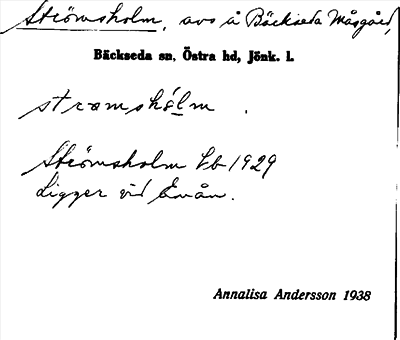 Strömsholm, avs å Bäckseda Måsgård,
Bäckseda sn, Östra hd, Jönk. l.
stromshólm .
Strömsholm Lb 1929
Ligger vid Emån.
Annalisa Andersson 1938